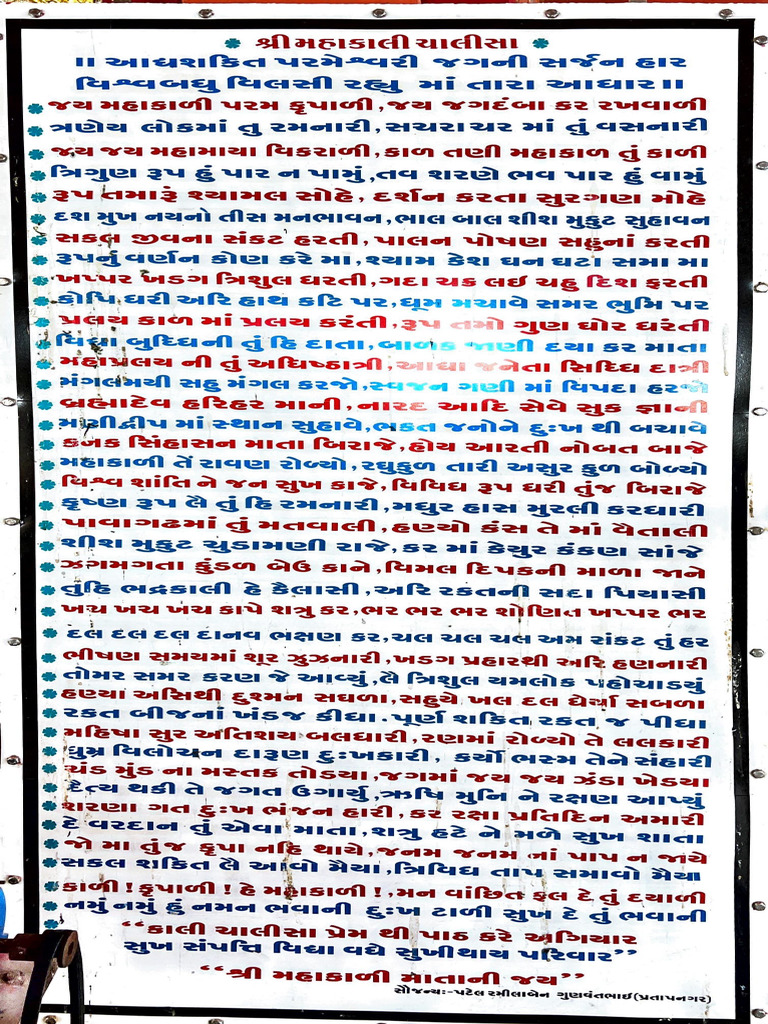 શ્રી મહાકાલી ચાલીસા
॥ આદ્યશક્તિ પરમેશ્વરી જગની સર્જન હાર
વિશ્વબધુ વિલસી રહ્યુ માં તારા આધાર ॥
જય મહાકાળી પરમ કૃપાળી,જય જગદંબા કર રખવાળી
ત્રણેય લોકમાં તુ રમનારી,સચરાચર માં તું વસનારી
જય જય મહામાયા વિકરાળી,કાળ તણી મહાકાળ તું કાળી
ત્રિગુણ રૂપ હું પાર ન પામું,તવ શરણે ભવ પાર હું વામું
રૂપ તમારૂં શ્યામલ સોહે, દર્શન કરતા સુરગણ મોહે
દશ મુખ નયનો તીસ મનભાવન,ભાલ બાલ શીશ મુકુટ સુહાવન
સકલ જીવના સંકટ હરતી,પાલન પોષણ સહુનાં કરતી
રૂપનું વર્ણન કોણ કરે મા,શ્યામ કેશ ઘન ઘટા સમા મા
ખપ્પર ખડગ ત્રિશુલ ધરતી,ગદા ચક્ર લઇ ચહુ દિશ ફરતી
કોપિ ધરી અરિ હાથ કટિ પર,ધૂમ મચાવે સમર ભુમિ પર
પ્રલય કાળ માં પ્રલય કરંતી,રૂપ તમો ગુણ ઘોર ધરંતી
વિદ્યા બુધ્ધિની તું હિ દાતા,બાળક જાણી દયા કર માતા
મહાપ્રલય ની તું અધિષ્ઠાત્રી,આદ્યા જનેતા સિધ્ધિ દાત્રી
મંગલમયી સહુ મંગલ કરજો,સ્વજન ગણી માં વિપદા હરજો
બ્રહ્માદેવ હરિહર માની,નારદ આદિ સેવે સુક જ્ઞાની
મણીદ્વીપ માં સ્થાન સુહાવે,ભકત જનોને દુઃખ થી બચાવે
કનક સિંહાસન માતા બિરાજે,હોય આરતી નોબત બાજે
મહાકાળી તેં રાવણ રોળ્યો,રઘુકુળ તારી અસુર કુળ બોળ્યો
વિશ્વ શાંતિ ને જન સુખ કાજે,વિવિધ રૂપ ધરી તુંજ બિરાજે
કૃષ્ણ રૂપ લૈ તું હિ રમનારી,મધુર હાસ મુરલી કરધારી
પાવાગઢમાં તું મતવાલી,હણ્યો કંસ તે માં વૈતાલી
શીશ મુકુટ ચુડામણી રાજે,કર માં કેયુર કંકણ સાંજે
ઝગમગતા કુંડળ બેઉ કાને,વિમલ દિપકની માળા જાને
તુંહિ ભદ્રકાલી હે કૈલાસી,અરિ રકતની સદા પિયાસી
ખચ ખચ ખંચ કાપે શત્રુ કર,ભર ભર ભર શોણિત ખપ્પર ભર
દલ દલ દલ દાનવ ભક્ષણ કર,ચલ ચલ ચલ અમ સંકટ તું હર
ભીષણ સમયમાં શૂર ઝુઝનારી,ખડગ પ્રહારથી અરિ હણનારી
તોમર સમર કરણ જે આવ્યું,લૈ ત્રિશુલ યમલોક પહોચાડયું
હણ્યા અસિથી દુશ્મન સઘળા,સહુયે ખલ દલ ઘેર્યા સબળા
રકત બીજનાં ખંડજ કીધા.પૂર્ણ શકિત રકત જ પીધા
મહિષા સુર અતિશય બલધારી,રણમાં રોળ્યો તે લલકારી
ધુમ્ર વિલોચન દારૂણ દુઃખકારી, કર્યો ભસ્મ તેને સંહારી
ચંડ મુંડ ના મસ્તક તોડયા,જગમાં જય જય ઝંડા ખેડયા
દૈત્ય થકી તે જગત ઉગાર્યુ,ઋષિ મુનિ ને રક્ષણ આપ્યું
શરણા ગત દુઃખ ભંજન હારી,કર રક્ષા પ્રતિદિન અમારી
દે વરદાન તું એવા માતા,શત્રુ હટે ને મળે સુખ શાતા
જો મા તુંજ કૃપા નહિ થાયે,જનમ જનમ નાં પાપ ન જાયે
સકલ શકિત લૈ આવો મૈયા,ત્રિવિધ તાપ સમાવો મૈયા
કાળી ! કૃપાળી ! હે મહાકાળી !,મન વાંછિત ફલ દે તું દયાળી
નમું નમું હું નમન ભવાની દુઃખ ટાળી સુખ દે તું ભવાની
“કાલી ચાલીસા પ્રેમ થી પાઠ કરે અગિયાર
સુખ સંપત્તિ વિદ્યા વધે સુખીથાય પરિવાર”
“શ્રી મહાકાળી માતાની જય”
સૌજન્યઃ-પટેલ રમીલાબેન ગુણવંતભાઇ(પ્રતાપનગર)